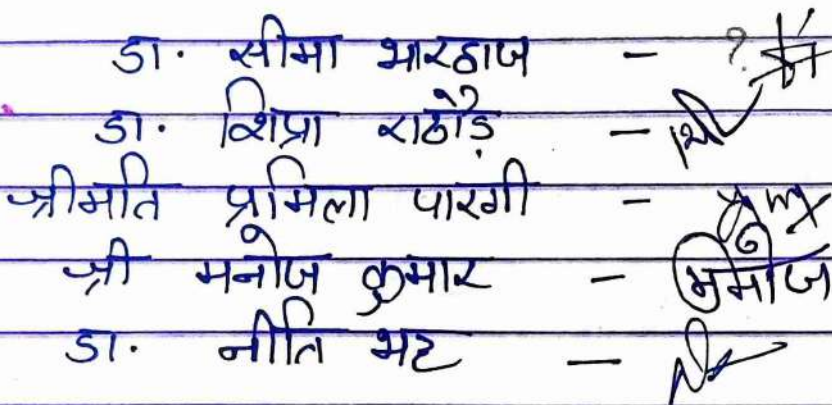 डा. सीमा भारद्वाज - ?
डा. शिप्रा राठौड़ -
श्रीमति प्रमिला पारगी -
श्री मनोज कुमार - मनोज
डा. नीति भट्ट -